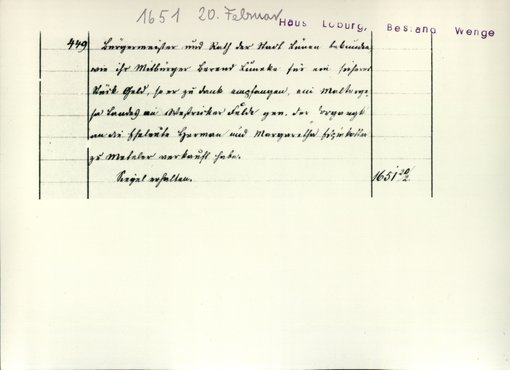 1651 20. Februar
Haus Loburg, Bestand Wenge
449 Bürgermeister und Rath der Stadt Lünen bekunden
wie ihr Mitbürger Berend Lüneke für ein sicheres
Stück Geld, so er zu dank empfangen, ein Malterge-
sa Landes im Felde gen. der
an die Eheleute Herman und Margaretha
zu verkauft habe.
Siegel erhalten. 1651 20/2.